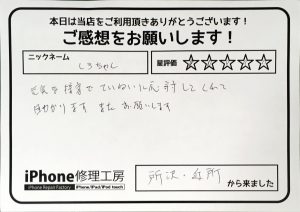 本日は当店をご利用頂きありがとうございます！
ご感想をお願いします！
ニックネーム
しろちゃん
星評価 ☆☆☆☆☆
ていねいに応対してくれて
助かります またお願いします
iPhone修理工房
iPhone Repair Factory
iPhone/iPad/iPod touch
所沢・近所
から来ました